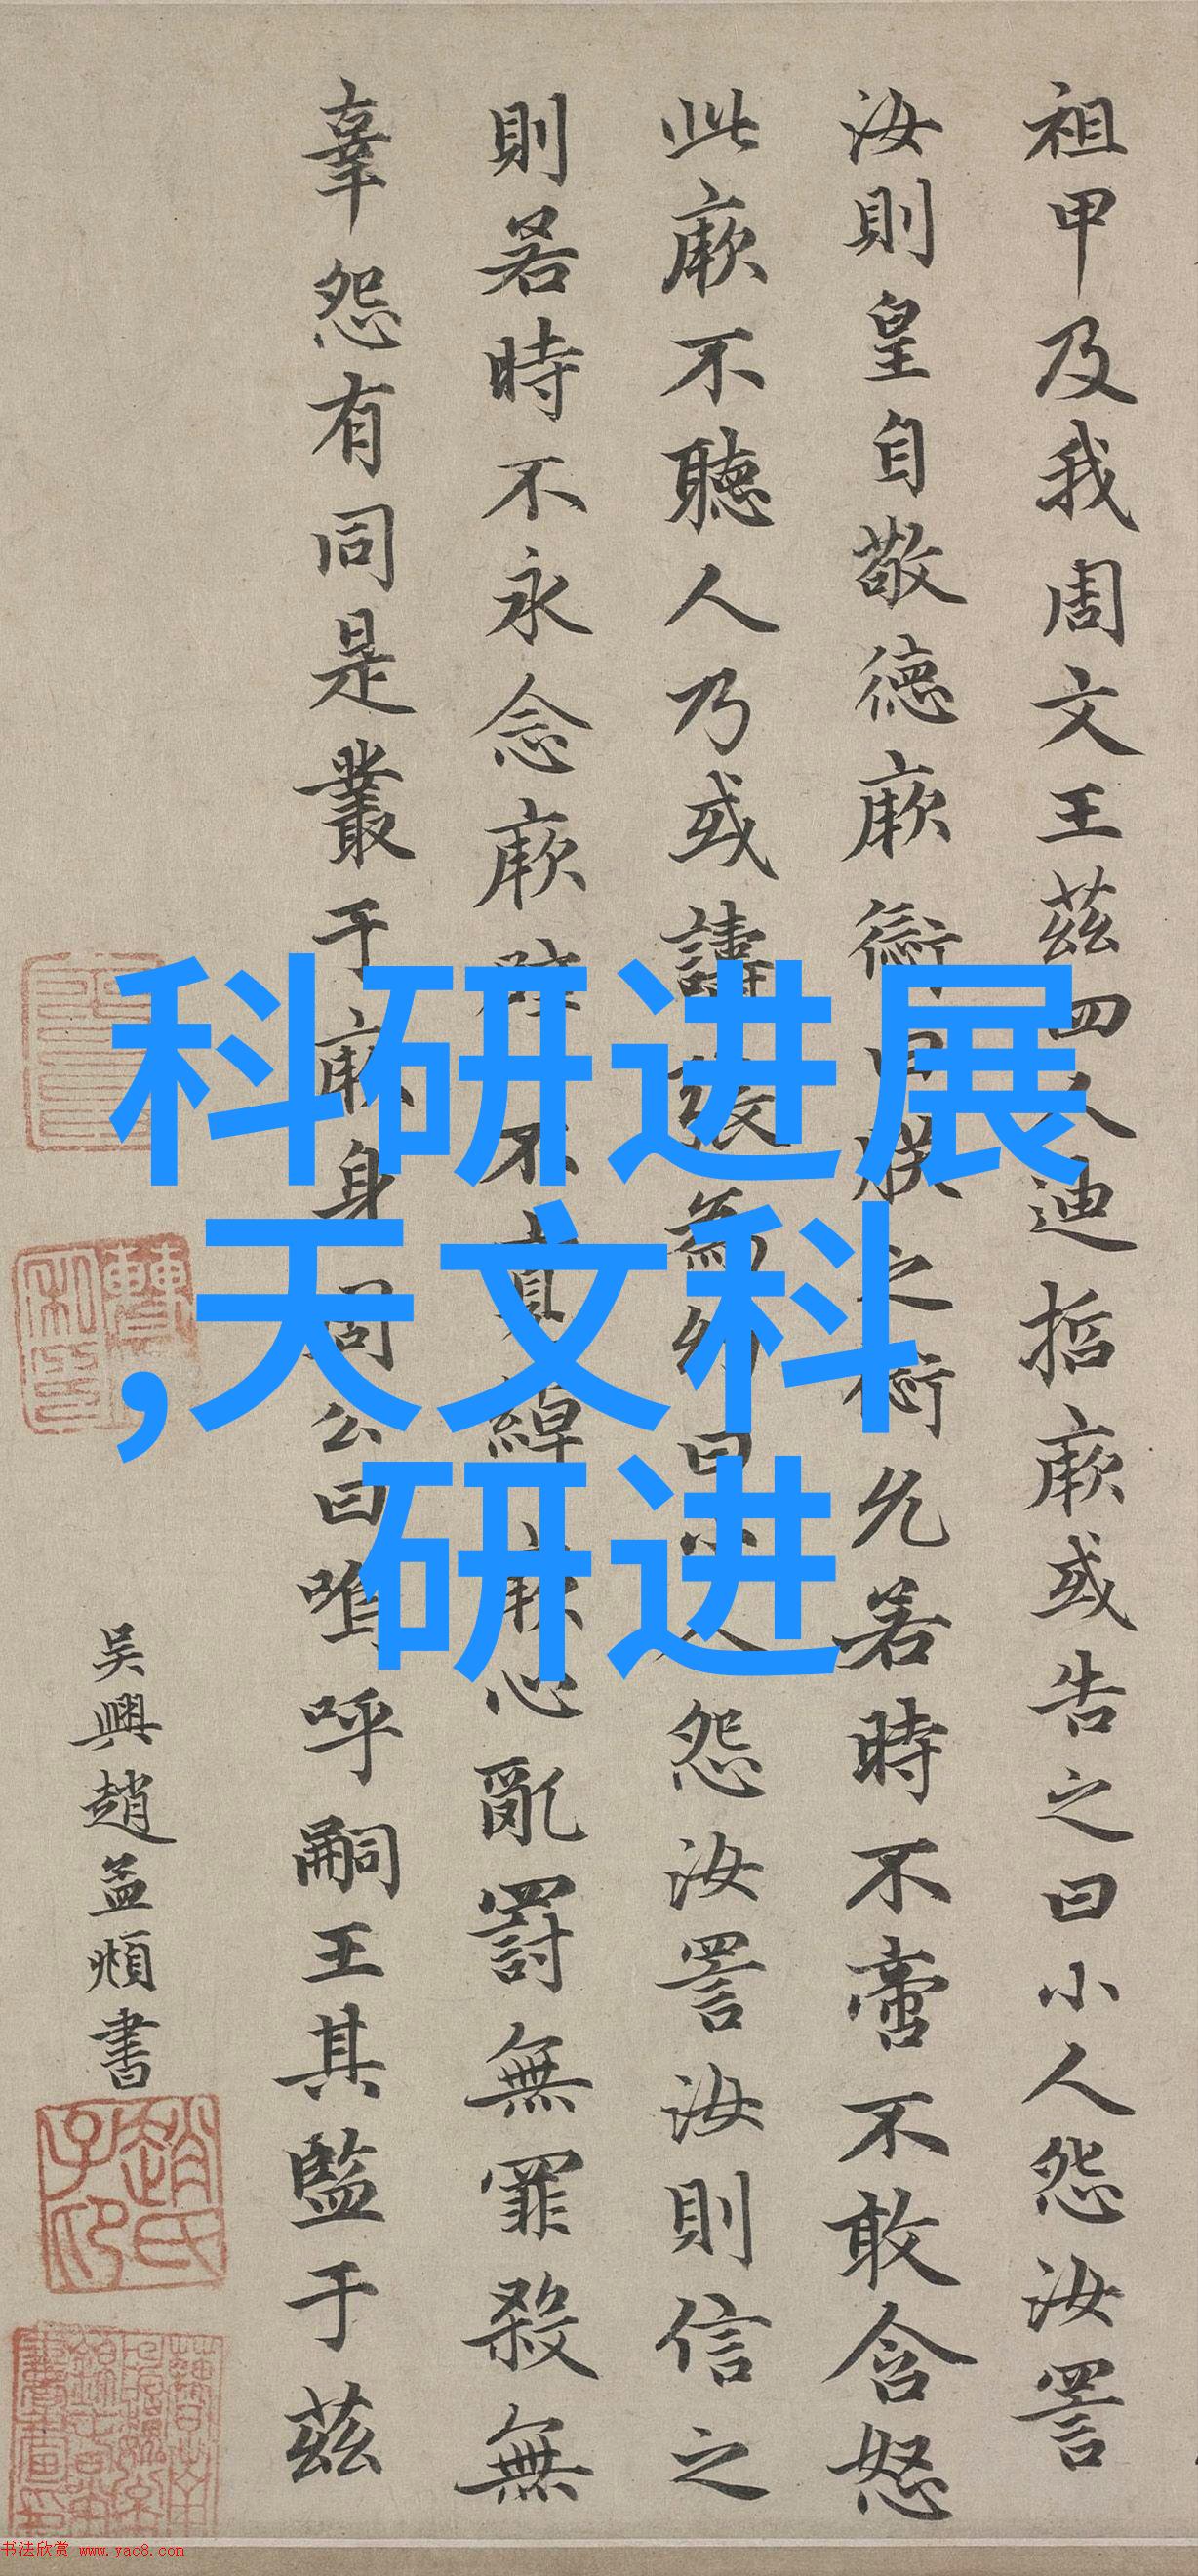 祖甲及我周文王茲四人迪哲厥或告之曰小人怨汝詈
汝則皇自敬德厥愆曰朕之愆允若時不啻不敢含怒
此厥不聽人乃或譸張為幻曰小人怨汝詈汝則信之
則若時不永念厥辟不寬綽厥心亂罰無罪殺無
辜怨有同是叢于厥身周公曰嗚呼嗣王其監于茲
吳興趙孟頫書
趙氏子昂
科研进展
,天文科
研进
书法欣赏 www.yac8.com